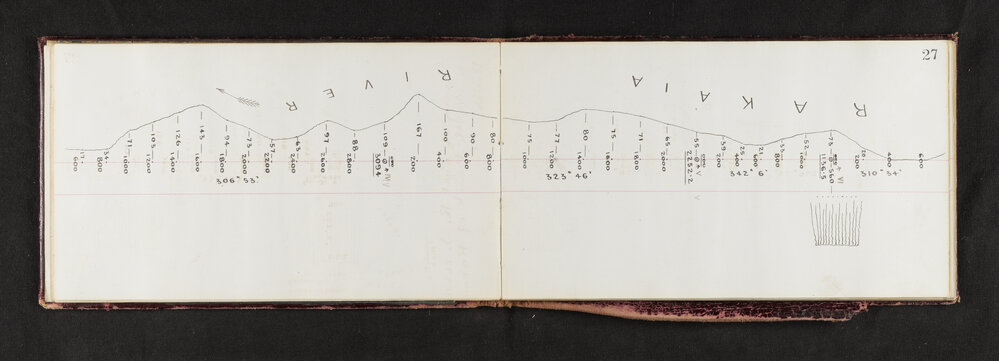 27
RAKAIA RIVER
17 34 71 103 126 143 94 73 57 63 97 88 109 167 100 90 80 75 77 80 75 71 55 39 25 21 53 52 73 @ 560 20
600 800 1000 1200 1400 1600 1800 2000 2200 2400 2600 2800 3094 200 400 600 800 1000 1200 1400 1600 1800 2000 2252.2 200 400 600 800 1000 1136.5 200 400 600
IV V VI
306° 53' 323° 46' 342° 6' 310° 34'
V